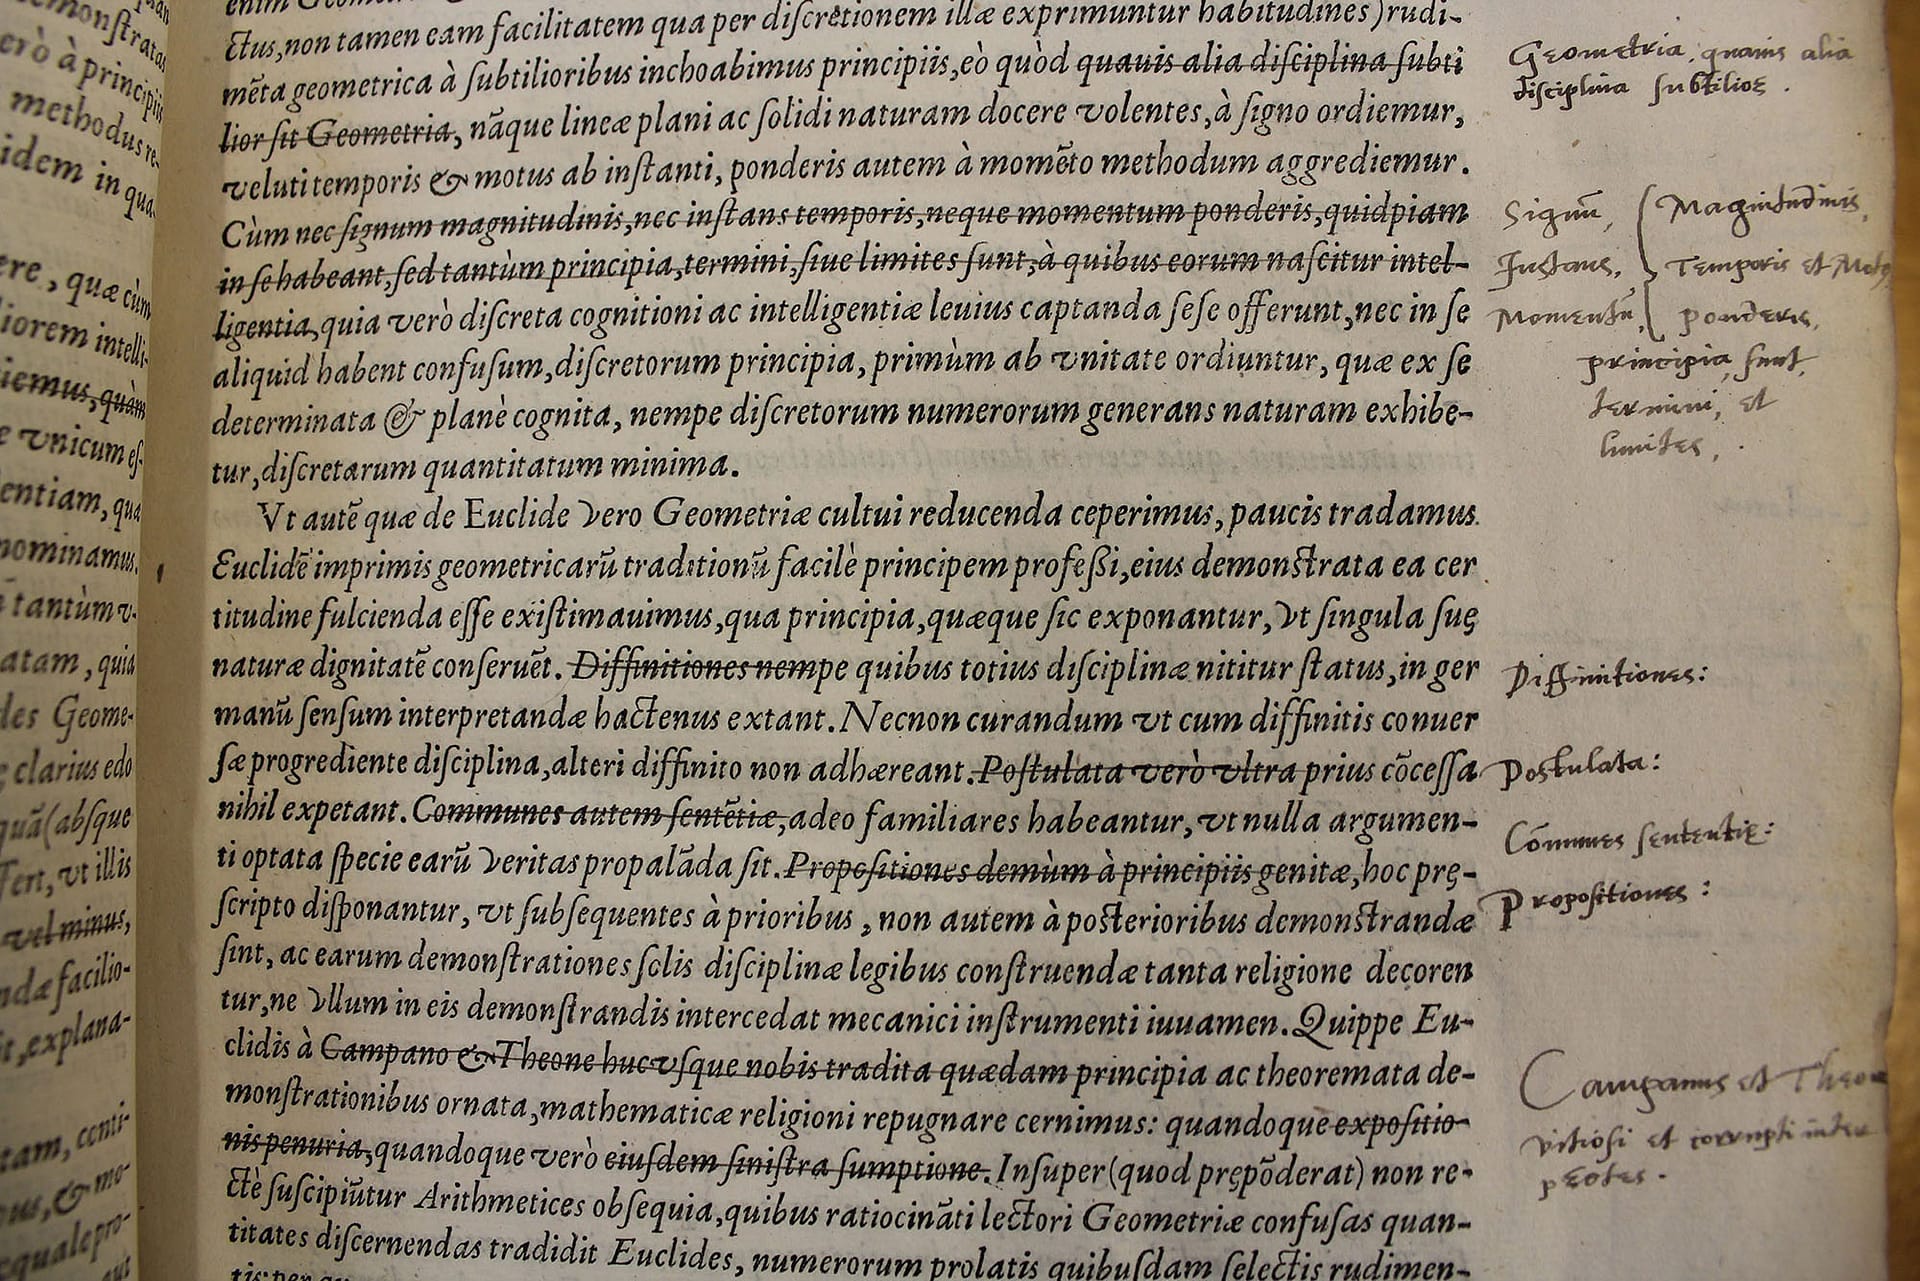 monstratas
erò à principiis
methodus re-
idem in qua-
ere, quæ cùm
liorem intelli-
iemus, quàm
e vnicum es-
entiam, qua
nominamus.
tantùm v-
atam, quia
des Geome-
clarius edo
quā (absque
fert, vt illis
vel minus,
ndæ facilio-
it, explana-
tam, conti-
mus, & mo-
equale pro-
aut
enim Geomet
ctus, non tamen eam facilitatem qua per discretionem illæ exprimuntur habitudines) rudi-
mēta geometrica à subtilioribus inchoabimus principiis, eò quòd quauis alia disciplina subti
lior sit Geometria, nāque lineæ plani ac solidi naturam docere volentes, à signo ordiemur,
veluti temporis & motus ab instanti, ponderis autem à momēto methodum aggrediemur.
Cùm nec signum magnitudinis, nec instans temporis, neque momentum ponderis, quidpiam
in se habeant, sed tantùm principia, termini, siue limites sunt, à quibus eorum nascitur intel-
ligentia, quia verò discreta cognitioni ac intelligentiæ leuius captanda sese offerunt, nec in se
aliquid habent confusum, discretorum principia, primùm ab vnitate ordiuntur, quæ ex se
determinata & planè cognita, nempe discretorum numerorum generans naturam exhibe-
tur, discretarum quantitatum minima.
Vt autē quæ de Euclide vero Geometriæ cultui reducenda ceperimus, paucis tradamus.
Euclidē imprimis geometricarū traditionū facilè principem professi, eius demonstrata ea cer
titudine fulcienda esse existimauimus, qua principia, quæque sic exponantur, vt singula suę
naturæ dignitatē conseruēt. Diffinitiones nempe quibus totius disciplinæ nititur status, in ger
manū sensum interpretandæ hactenus extant. Necnon curandum vt cum diffinitis conuer
sæ progrediente disciplina, alteri diffinito non adhæreant. Postulata verò vltra prius cōcessa
nihil expetant. Communes autem sentētiæ, adeo familiares habeantur, vt nulla argumen-
ti optata specie earū veritas propalāda sit. Propositiones demùm à principiis genitæ, hoc prę-
scripto disponantur, vt subsequentes à prioribus, non autem à posterioribus demonstrandæ
sint, ac earum demonstrationes solis disciplinæ legibus construendæ tanta religione decoren
tur, ne vllum in eis demonstrandis intercedat mecanici instrumenti iuuamen. Quippe Eu-
clidis à Campano & Theone hucvsque nobis tradita quædam principia ac theoremata de-
monstrationibus ornata, mathematicæ religioni repugnare cernimus: quandoque expositio-
nis penuria, quandoque verò eiusdem sinistra sumptione. Insuper (quod prępōderat) non re-
ctè suscipiūtur Arithmetices obsequia, quibus ratiocināti lectori Geometriæ confusas quan-
titates discernendas tradidit Euclides, numerorum prolatis quibusdam selectis rudimen-
tis: per
Geometria, quauis alia
disciplina subtilior.
Signū, Magnitudinis,
Instans, Temporis et Motg
Momentū, ponderis,
principia sunt,
termini, et
limites,.
Diffinitiones:
Postulata:
Cōmunes sententię:
Propositiones:
Campanus et Theon
vitiosi et corrupti inter
pretes.